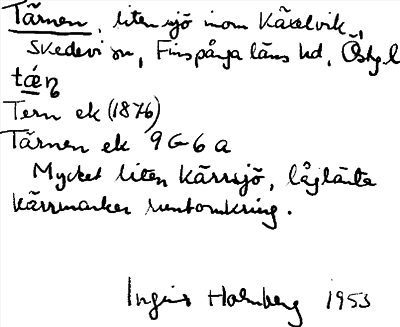 Tärnen, liten sjö inom Käxelvik,
Skedevi sn, Finspånga läns hd, Östg.l
Tern ek (1876)
Tärnen ek 9G6a
Mycket liten kärrsjö, låglänta
kärrmarker runtomkring.
Holmberg 1953